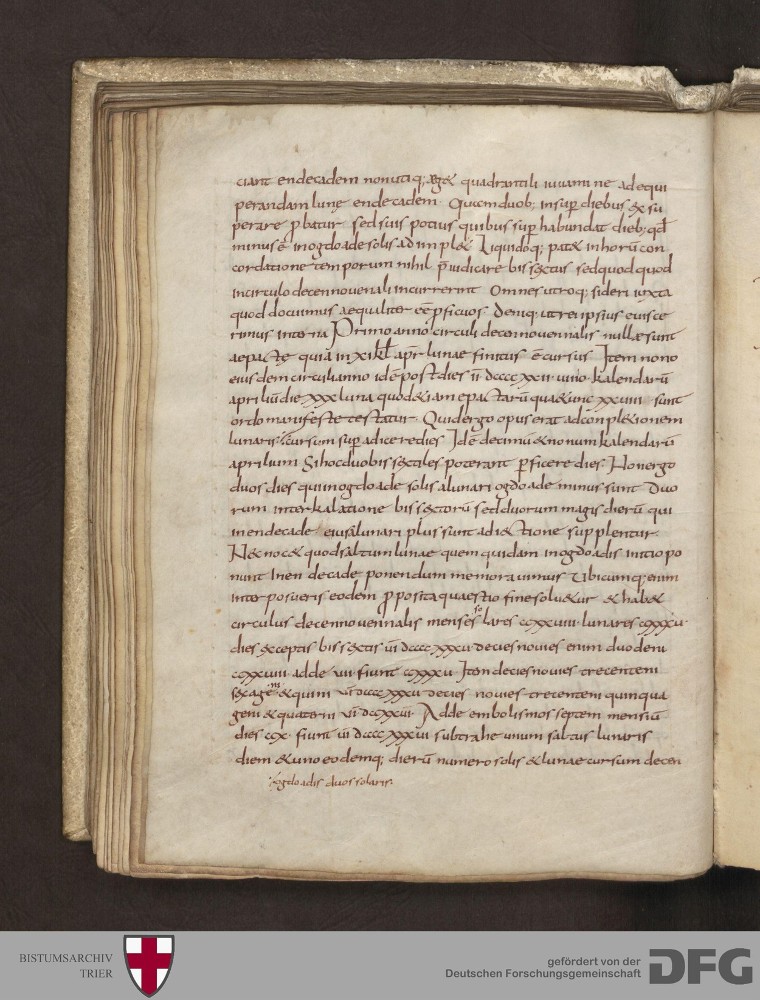 ciant endecadem non utiq; aeg& quadrantili iuuamine adequi
perandam lunę endecadem. Qui cum duob; insup diebus &
perare pbatur. sed suis potius quibus sup habundat dieb; qđ
minus ē in ogdoade solis adimpl& Liquidoq; pat& in horū con
cordatione temporum nihil p̄iudicare bissextus sed quod quod
in circulo decennouenali incurrerint Omnes utroq; sideri iuxta
quod docuimus aequaliter eē pficuos. Deniq; utrei ipsius
rimus interna Primo anno circuli decennouennalis nullae sunt
aepactę quia in xi kl̄ apr̄ lunae finitus ē cursus Item nono
eiusdem circuli anno idē post dies kalendarū
apriliū die xxx luna quod &iam epactarū quae nunc xxviii sunt
ordo manifeste testatur. Quid ergo opus erat ad conpl&ionem
lunaris cursum sup adicere dies Idē decimū & nonum kalendarū
aprilium Si hoc duo bissextiles poterant pficere dies Non ergo
duos dies qui in ogdoade solis a lunari ogdoade minus sunt Duo
rum interkalatione bissextorū sed duorum magis dierū qui
in endecade eius a lunari plus sunt adiectione supplentur.
N& noc& quod saltum lunae quem quidam in ogdoadis initio po
nunt In endecade ponendum memorauimus Ubicumq; enim
interposueris eodem pposita quaestio fine solu&ur & hab&
circulus decennouennalis menses solares ccxxviii lunares ccxxxv
dies exceptis bissextis vi dccccxxxv decies nouies enim duodeni
ccxxviii adde vii fiunt ccxxxv Item decies nouies trecenteni
sexageni & quini vi dccccxxxv decies nouies trecenteni quinqua
geni & quaterni vi dccxxvi Adde embolismos septem mensiū
dies ccx fiunt vi dccccxxxvi subtrahe unum saltus lunaris
diem & uno eodemq; dierū numero solis & lunae cursum decen
ogdoadis duos solaris.
BISTUMSARCHIV
TRIER
gefördert von der
Deutschen Forschungsgemeinschaft
DFG